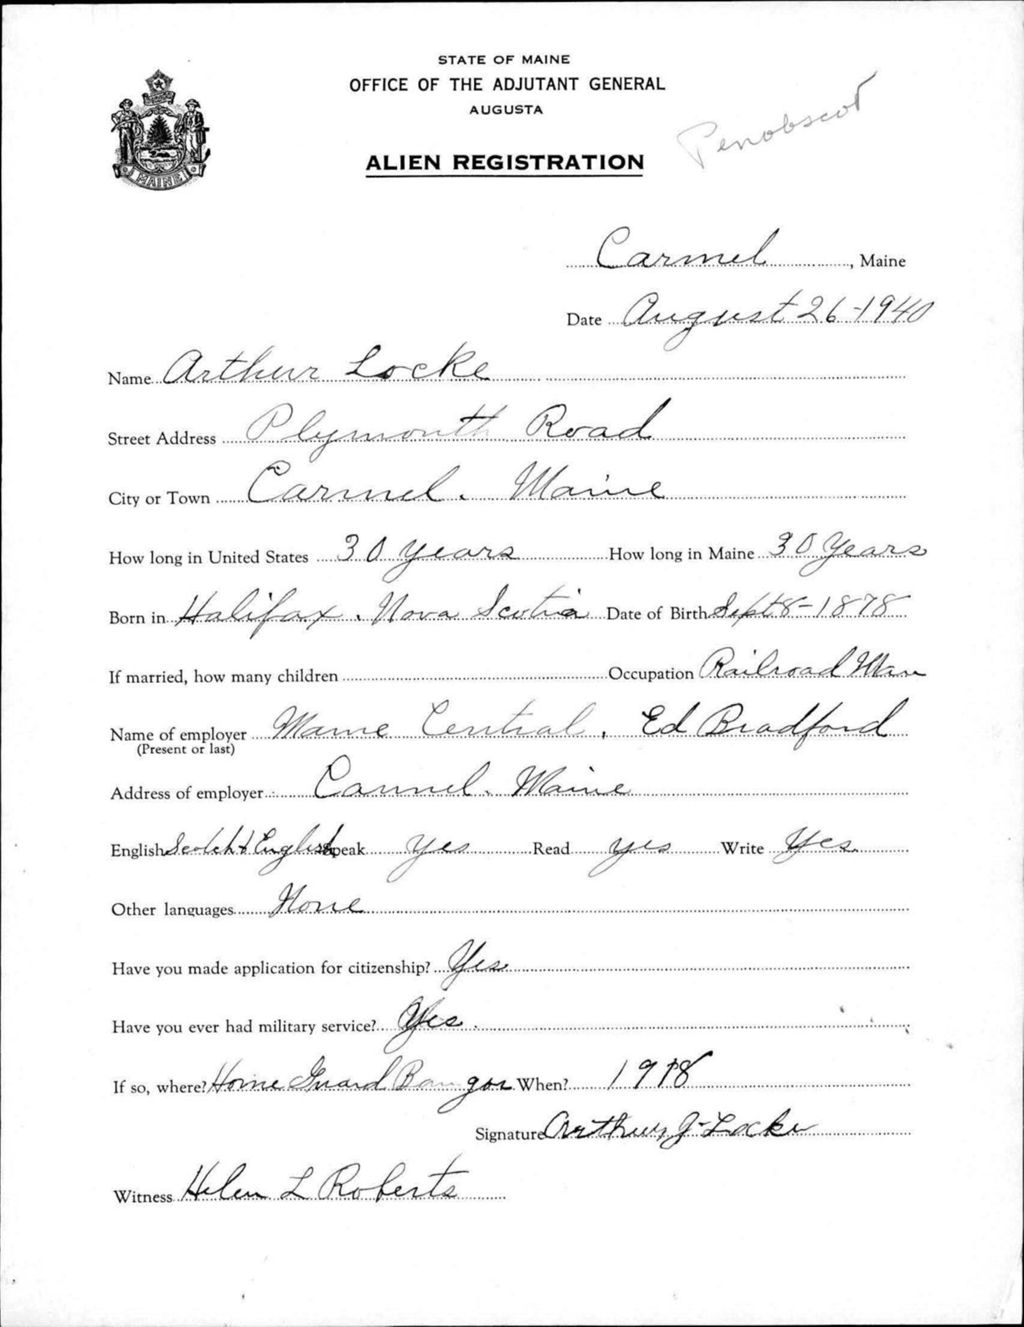 STATE OF MAINE
OFFICE OF THE ADJUTANT GENERAL
AUGUSTA
Penobscot
ALIEN REGISTRATION
MAINE
Carmel, Maine
Date August 26-1940
Name Arthur Locke
Street Address Plymouth Road
City or Town Carmel. Maine
How long in United States 30 years How long in Maine 30 Years
Born in Halifax. Nova Scotia Date of Birth Sept 8-1878
If married, how many children Occupation Railroad Man
Name of employer Maine Central, Ed Bradford
(Present or last)
Address of employer Carmel. Maine
English Scotch & English Speak yes Read yes Write Yes
Other languages None
Have you made application for citizenship? Yes
Have you ever had military service? Yes.
If so, where? Home Guard Bangor When? 1918
Signature Arthur J. Locke
Witness Helen L Roberts